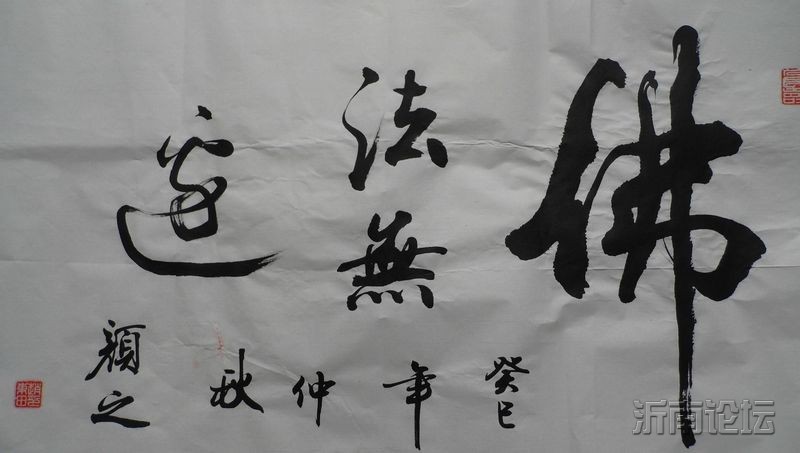 佛
法無
邊
癸巳
年
仲
秋
穎之
沂南论坛